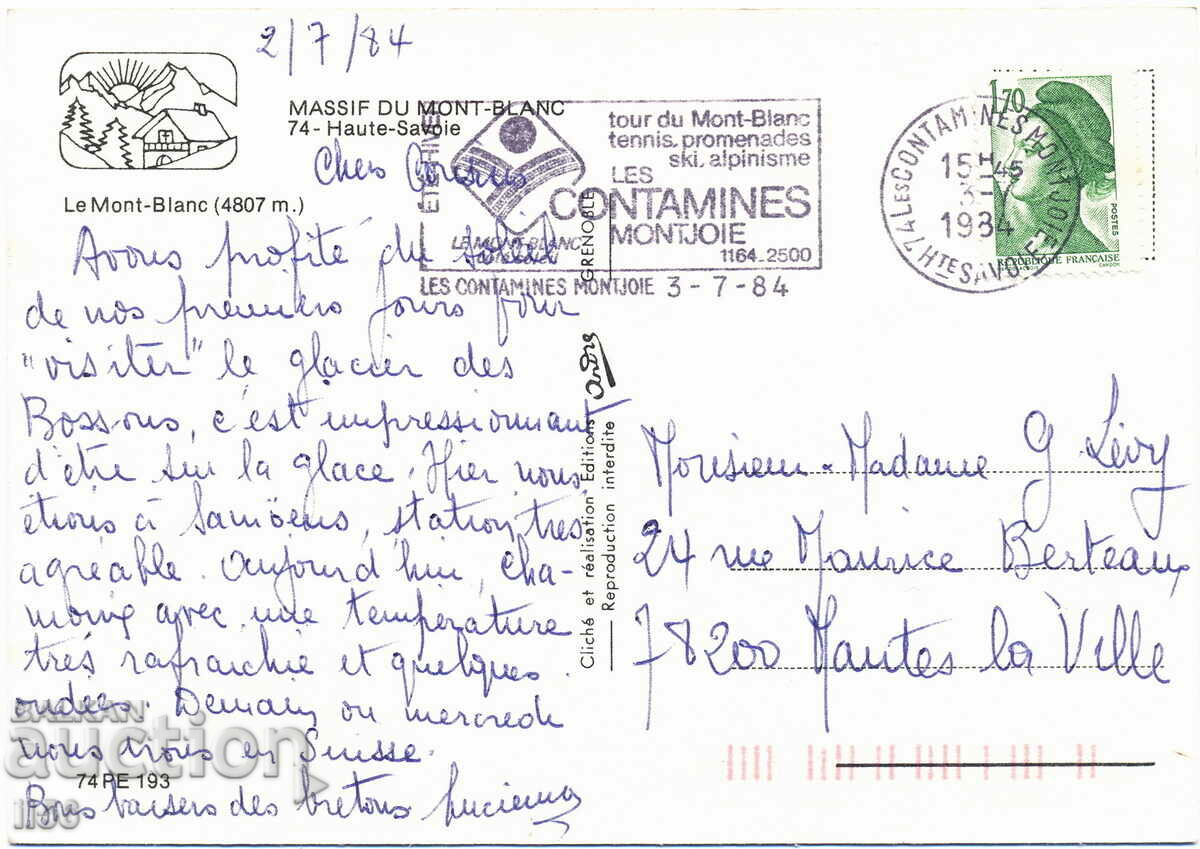 2/7/84
MASSIF DU MONT-BLANC
74 - Haute-Savoie
Le Mont-Blanc (4807 m.)
Chers Cousins
Avons profité du soleil
de nos premiers jours pour
"visiter" le glacier des
Bossons, c'est impressionnant
d'être sur la glace. Hier nous
étions à Samoëns, station très
agréable. Aujourd'hui, Cha-
monix avec une température
très rafraîchie et quelques
ondées. Demain ou mercredi
nous irons en Suisse.
Bons baisers des bretons Lucienne
74 PE 193
ETE HIVER
LE MONT-BLANC
tour du Mont-Blanc
tennis. promenades
ski. alpinisme
LES
CONTAMINES
MONTJOIE
1164_2500
GRENOBLE
LES CONTAMINES MONTJOIE 3-7-84
74 LES CONTAMINES MONTJOIE
HTE SAVOIE
15H45
3-
1984
1,70
POSTES
REPUBLIQUE FRANÇAISE
GANDON
Cliché et réalisation Editions André
Reproduction interdite
Monsieur - Madame G Lévy
24 rue Maurice Berteaux
78200 Mantes la Ville
BALKAN
auction